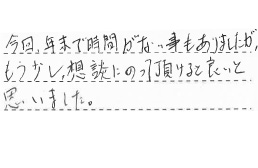 今回、年末で時間がない事もありましたが、
もう少し、想談にのって頂けると良いと
思いました。